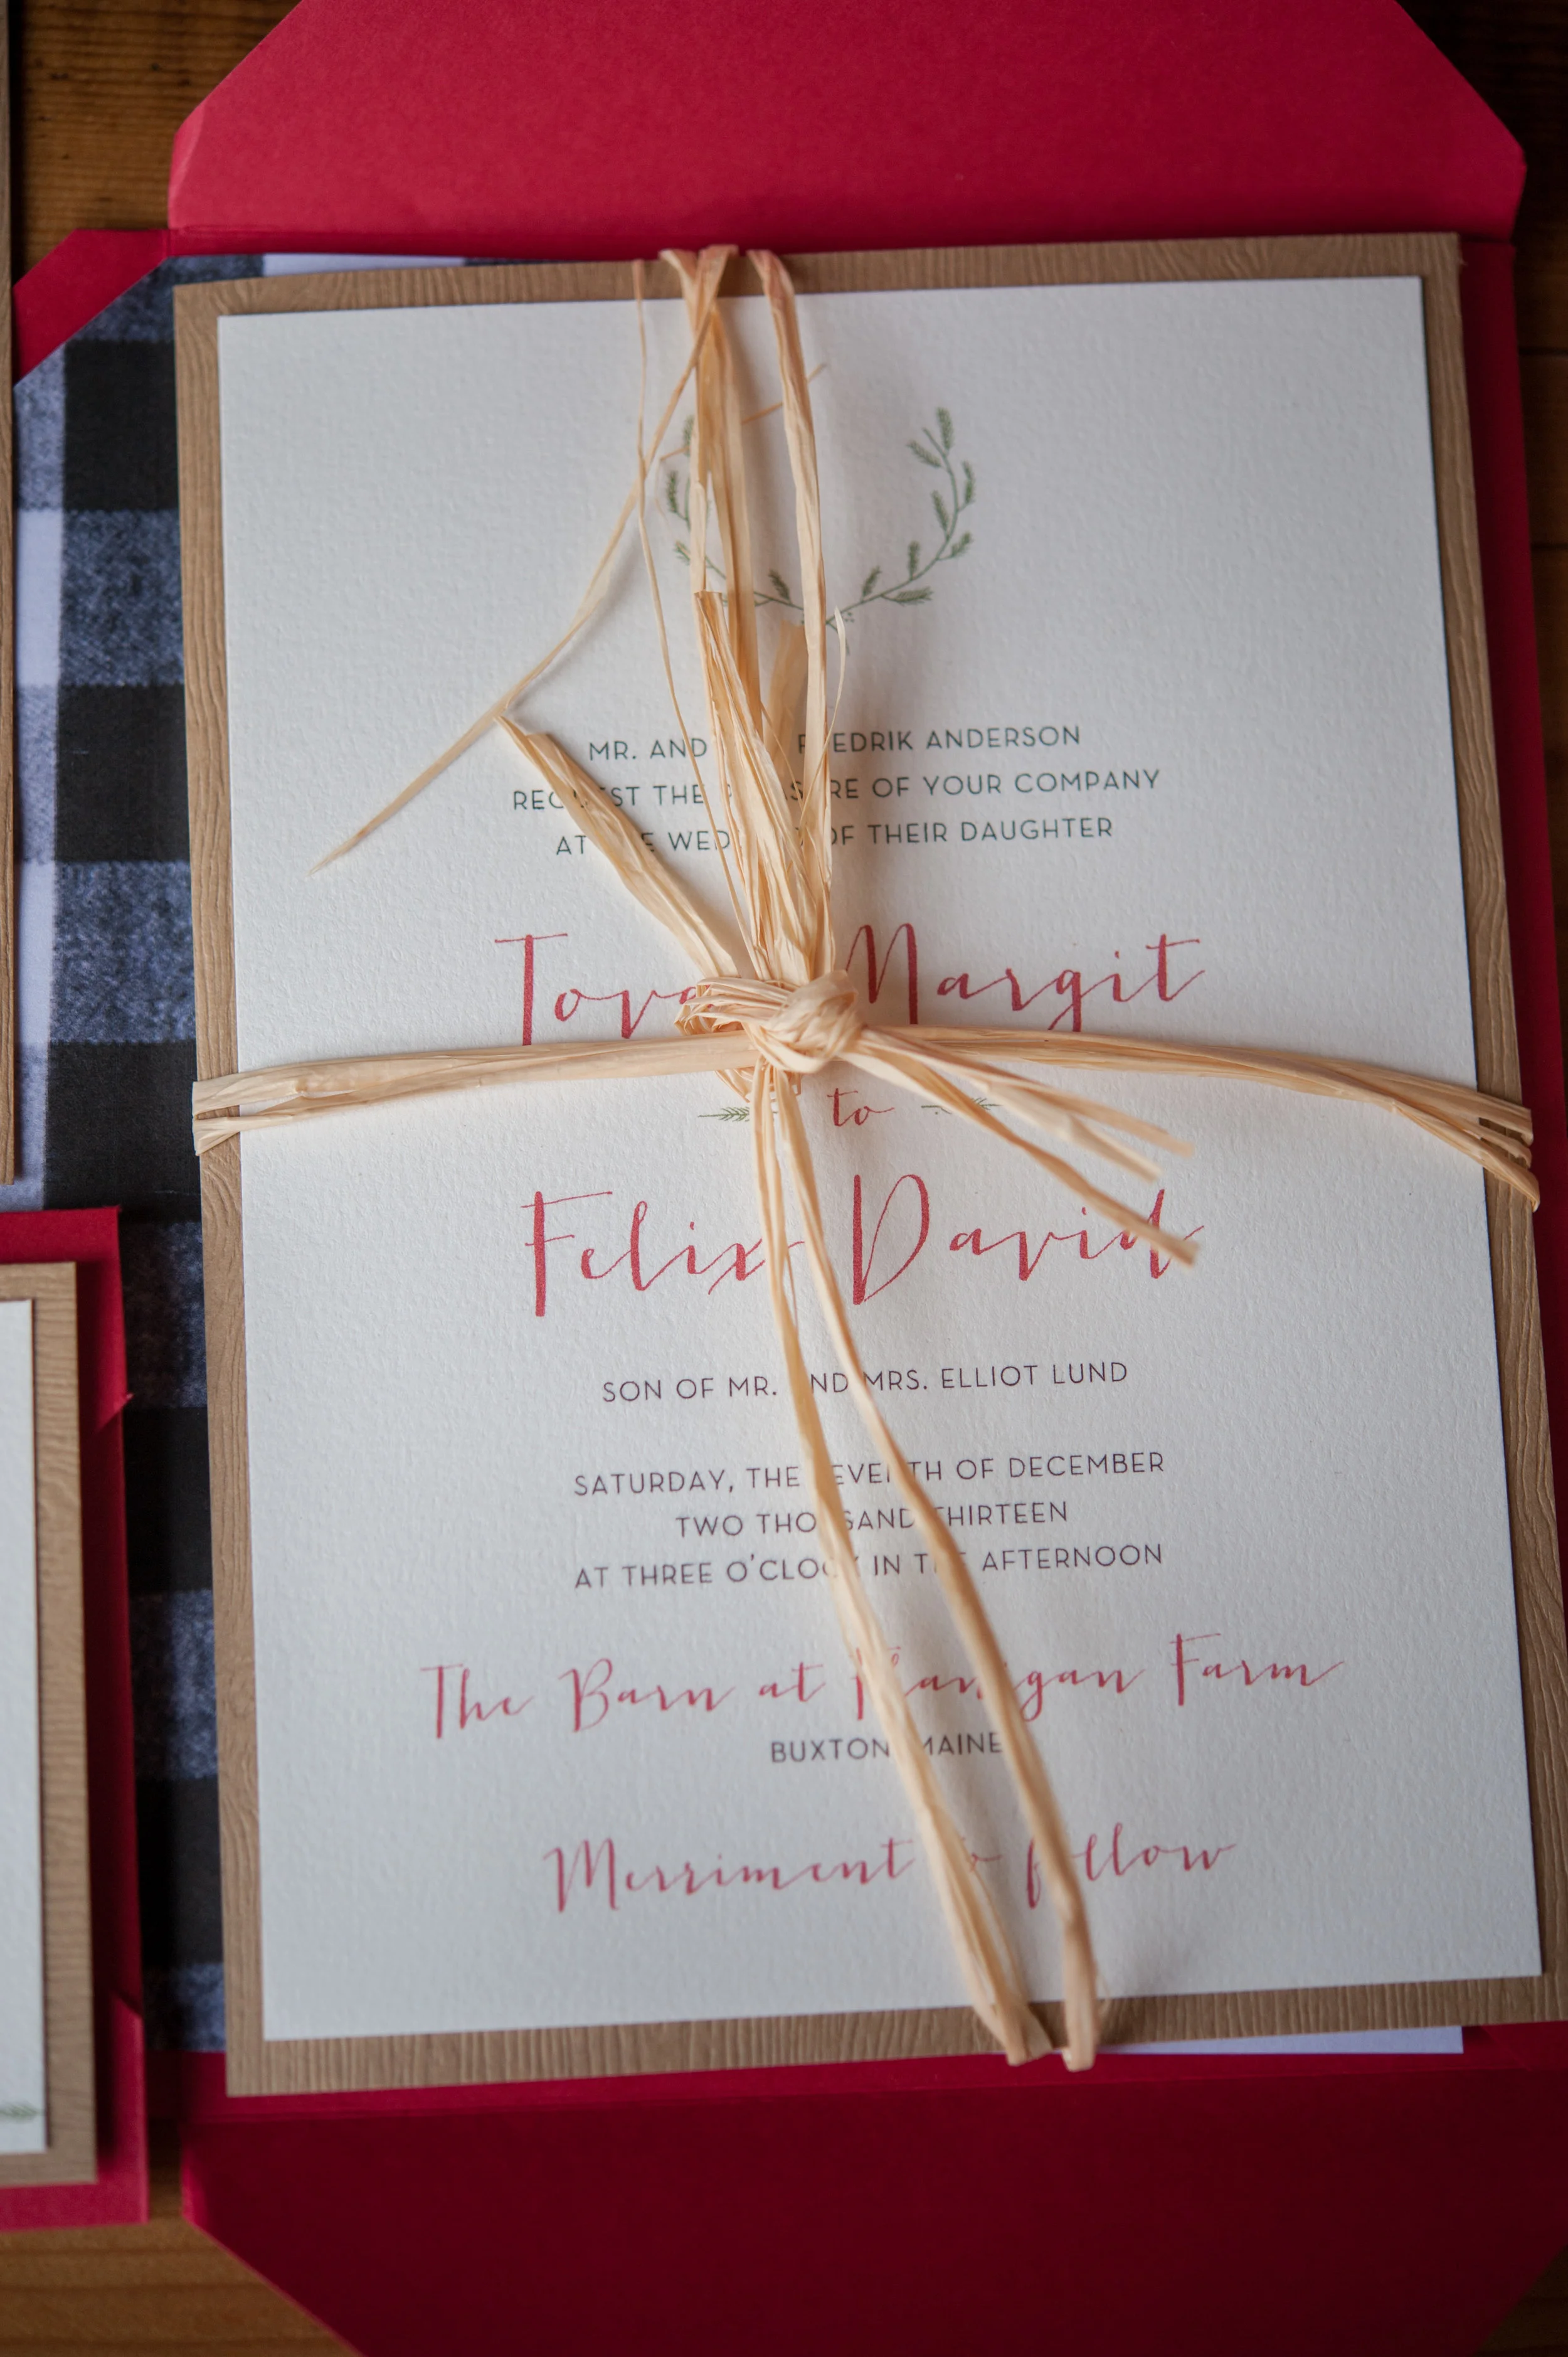 MR. AND FREDRIK ANDERSON
REQUEST THE PLEASURE OF YOUR COMPANY
AT THE WEDDING OF THEIR DAUGHTER
Tova Margit
to
Felix David
SON OF MR. AND MRS. ELLIOT LUND
SATURDAY, THE SEVENTH OF DECEMBER
TWO THOUSAND THIRTEEN
AT THREE O'CLOCK IN THE AFTERNOON
The Barn at Flanagan Farm
BUXTON, MAINE
Merriment to follow